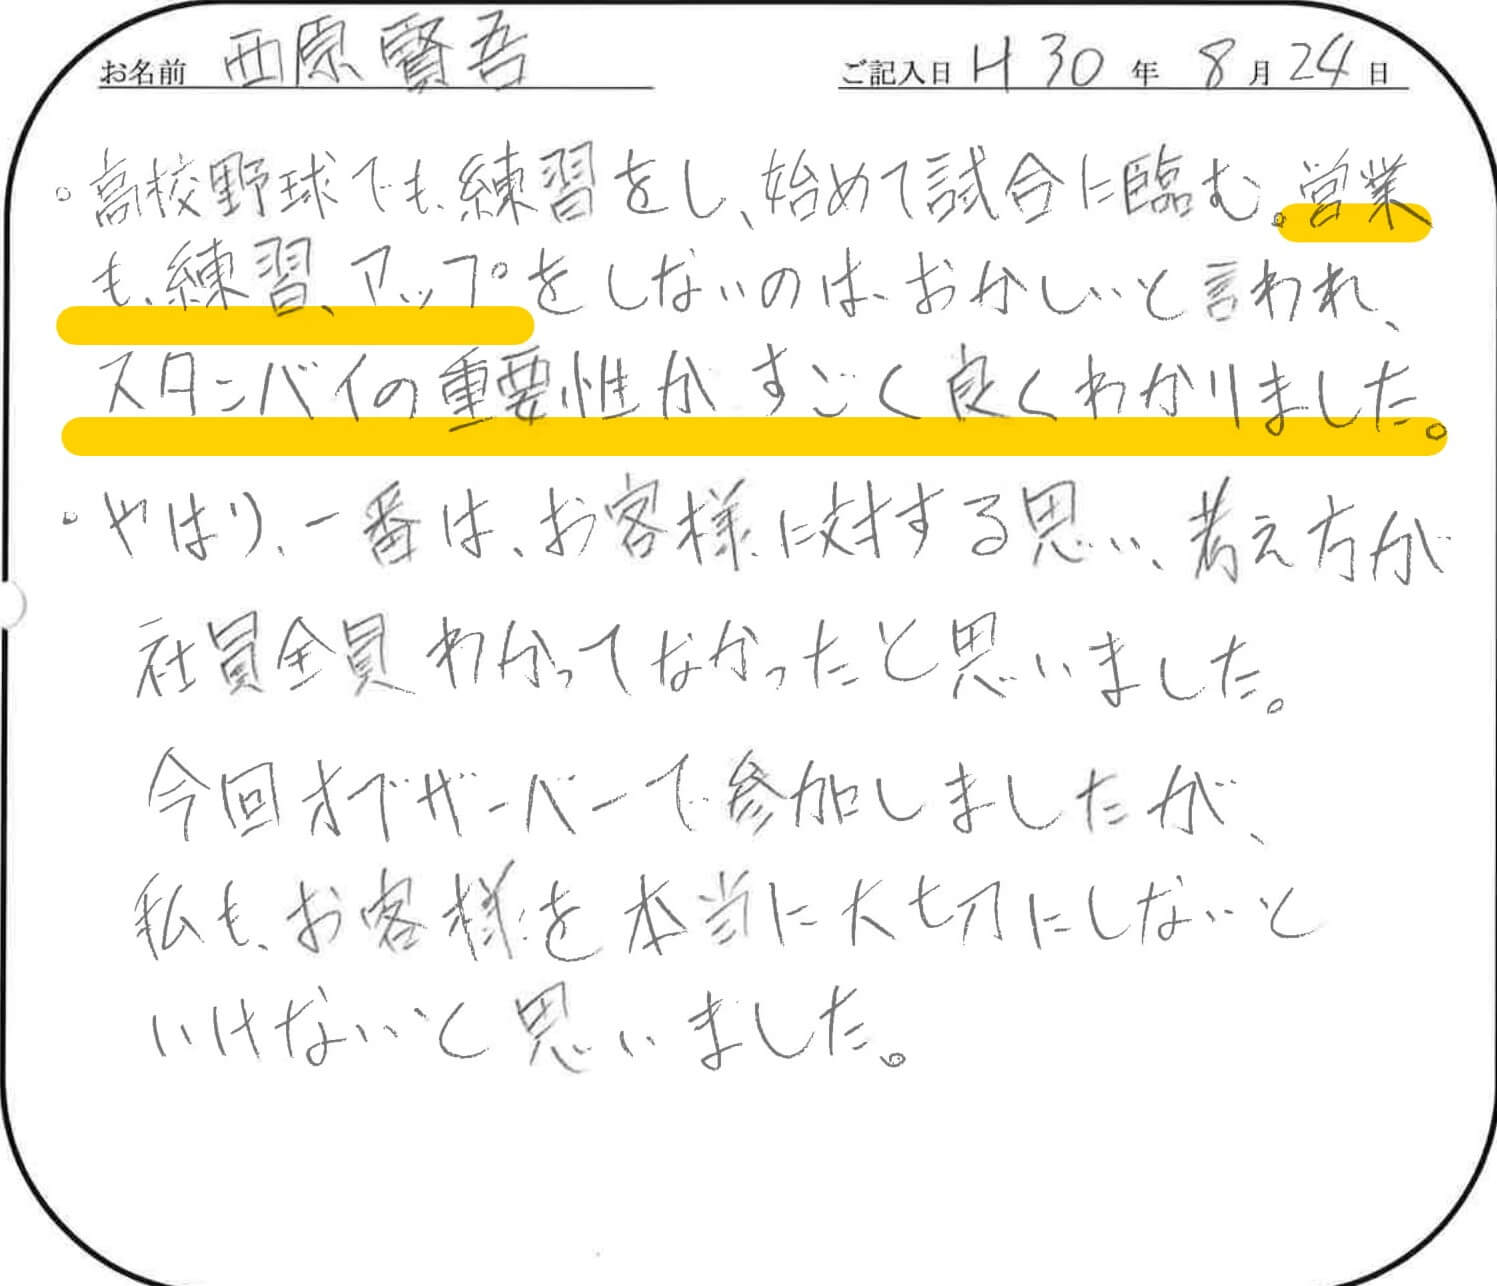 お名前 西原賢吾 ご記入日 H30年8月24日
。高校野球でも、練習をし、始めて試合に臨む。営業
も、練習、アップをしないのは、おかしいと言われ、
スタンバイの重要性がすごく良くわかりました。
。やはり、一番は、お客様に対する思い、考え方が
社員全員わかってなかったと思いました。
今回オブザーバーで参加しましたが、
私も、お客様を本当に大切にしないと
いけないと思いました。